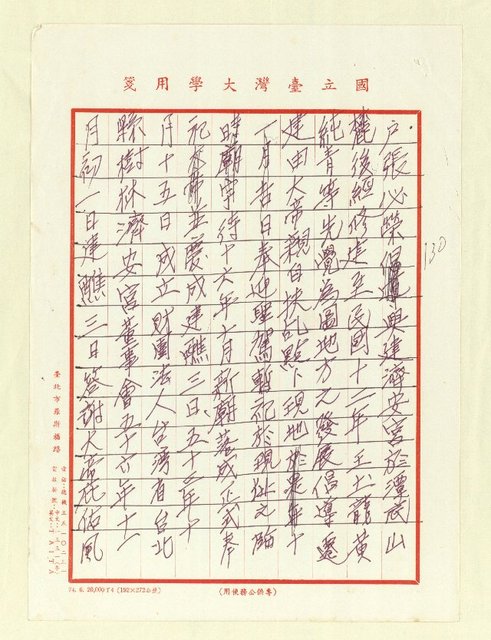 國立臺灣大學用箋
130
戶張必榮倡導興建濟安宮於潭底山
麓後經修建至民國十二年王土龍黃
純青等先覺為圖地方之發展倡導遷
建由大帝親自扶乩點下現地於是年十
一月吉日奉迎聖駕暫祀於現址之臨
時廟宇待十六年十月新廟落成正式奉
祀大帝並慶成建醮三日、五十三年十
月十五日成立財團法人台灣省台北
縣樹林濟安宮董事會五十六年十一
月初一日建醮三日答謝大帝庇佑風
臺北市羅斯福路
74. 6. 20,000丁4 (192×272公釐)
(專供公務使用)